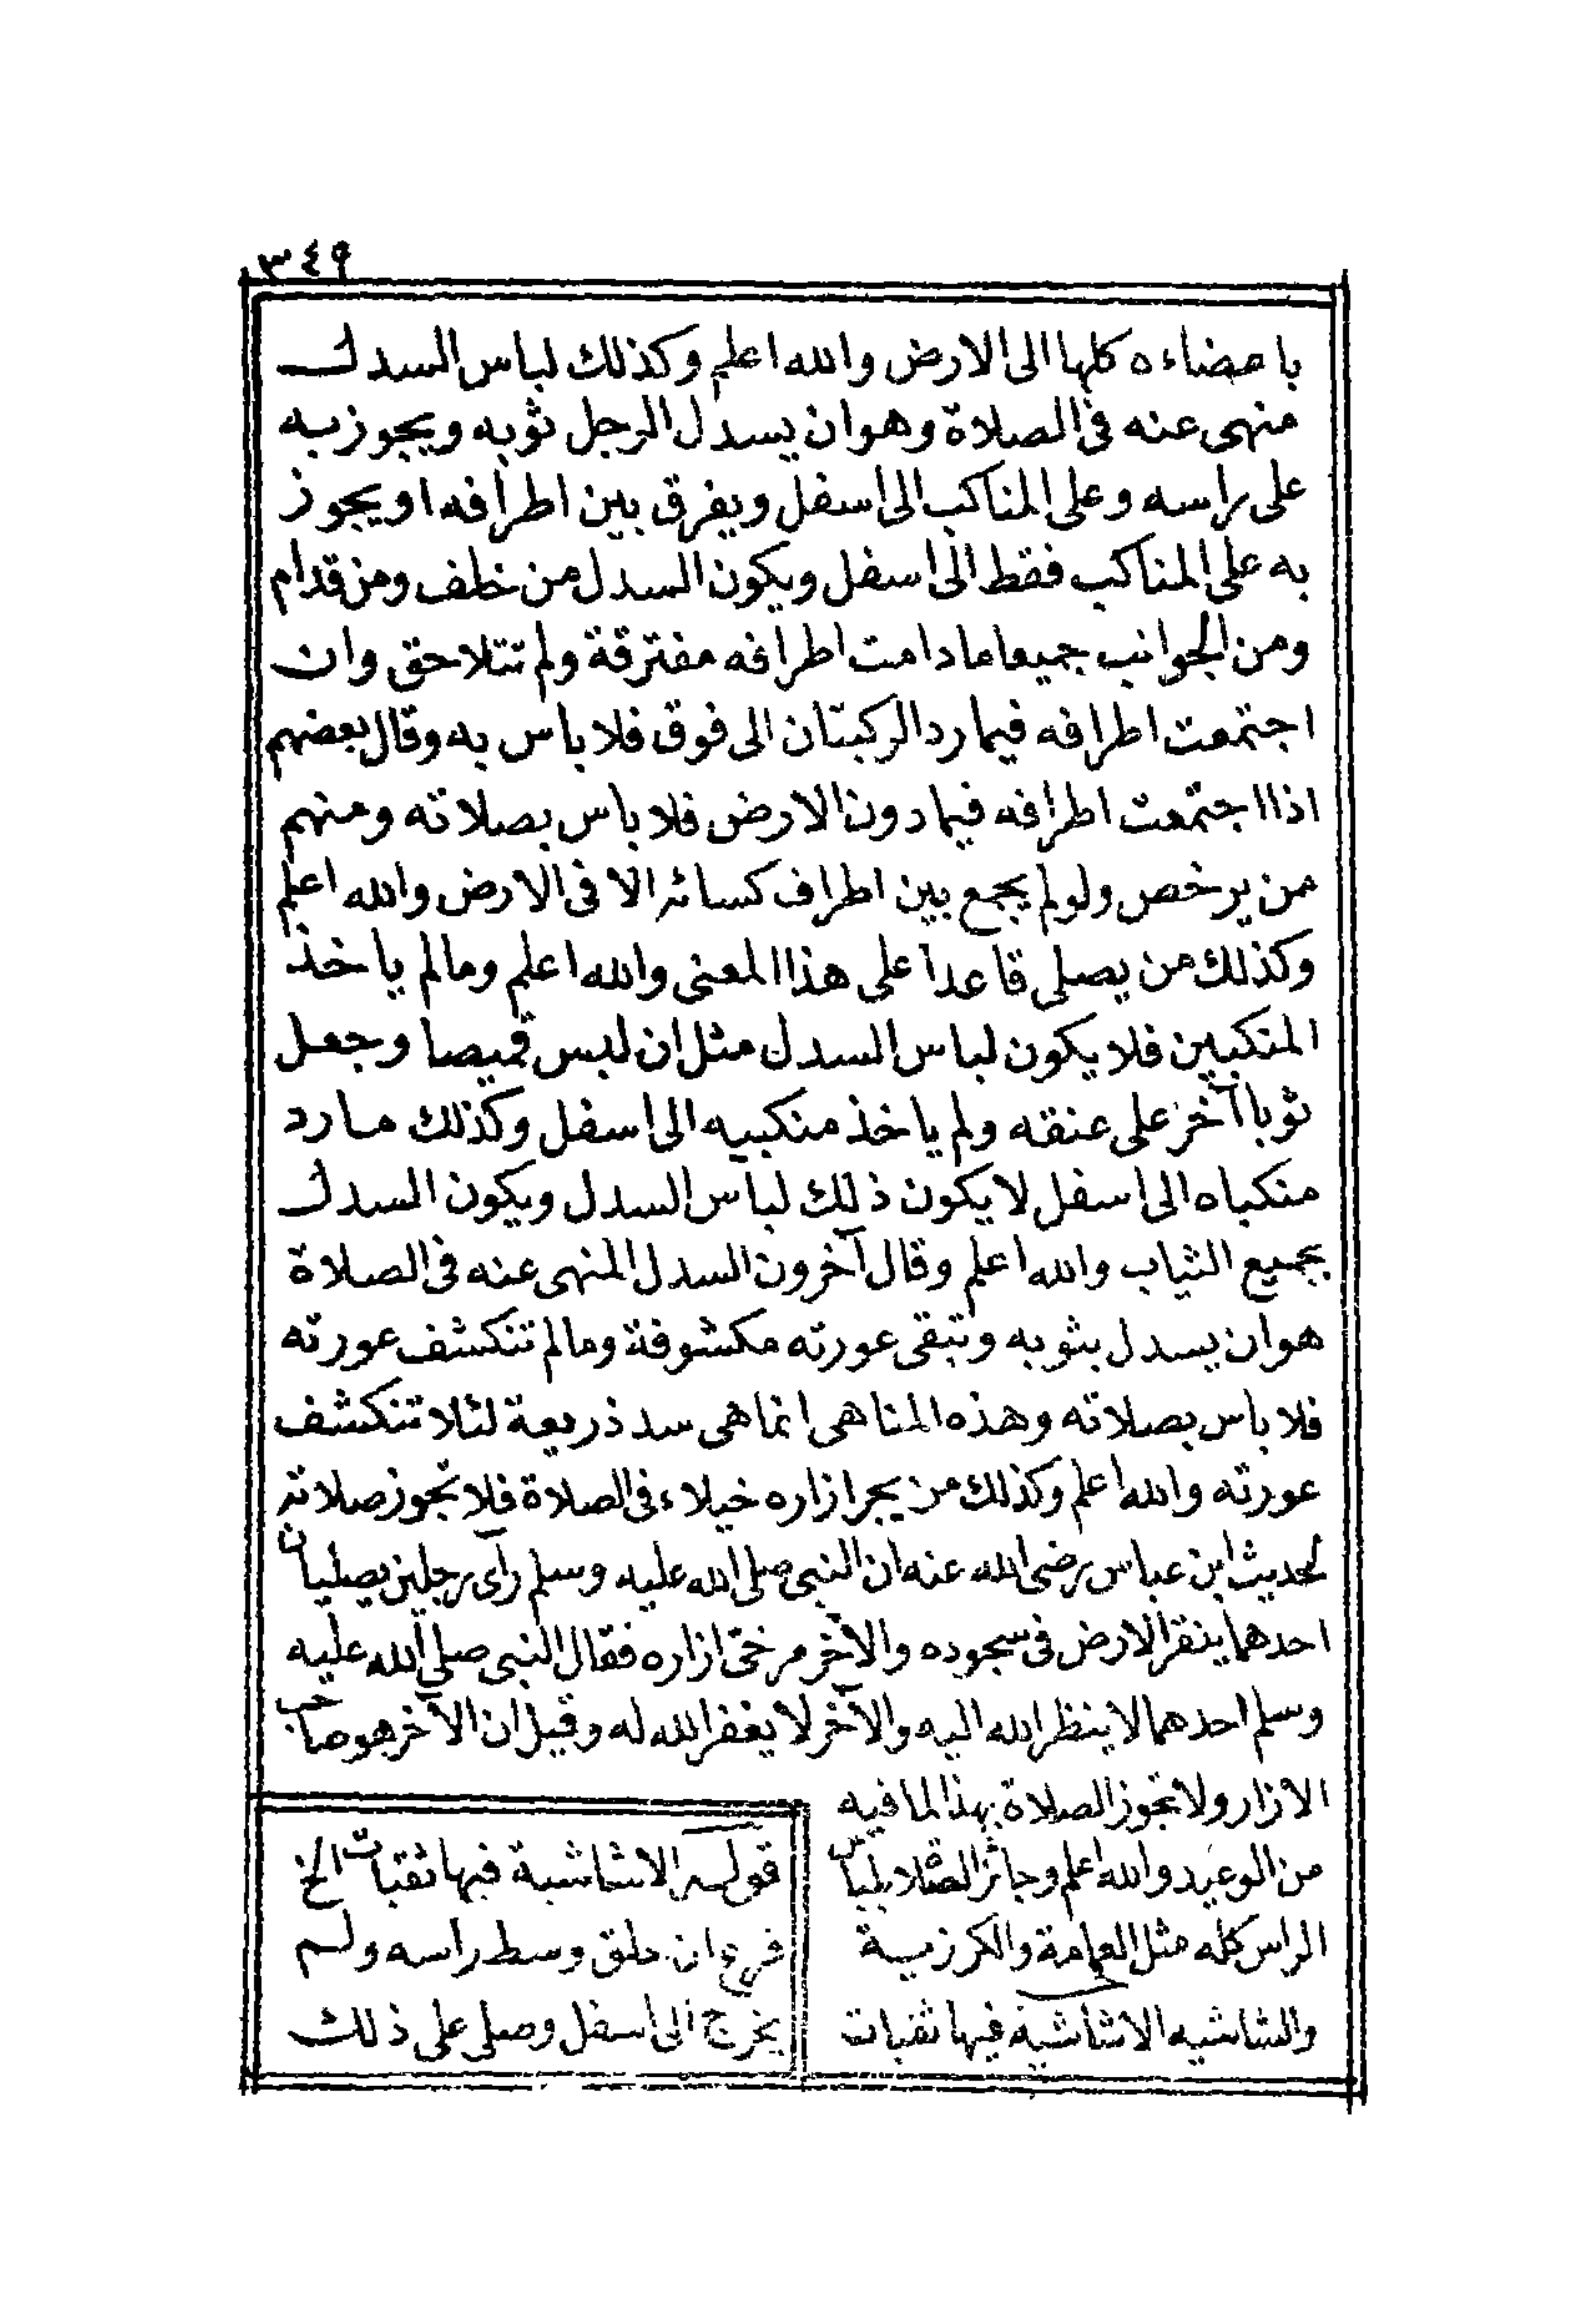 ٣٤٩
باعضاءه كلها الى الارض والله اعلم وكذلك لباس السدل
منهى عنه فى الصلاة وهو ان يسدل الرجل ثوبه ويجوز به
على راسه وعلى المناكب الى اسفل ويفرق بين اطرافه او يجوز
به على المناكب فقط الى اسفل ويكون السدل من خلف ومن قدام
ومن الجوانب جميعا ما دامت اطرافه مفترقة ولم تتلاحق وان
اجتمعت اطرافه فيما رد الركبتان الى فوق فلا باس به وقال بعضهم
اذا اجتمعت اطرافه فيما دون الارض فلا باس بصلاته ومنهم
من يرخص ولو لم يجمع بين اطراف كسائه الا فى الارض والله اعلم
وكذلك من يصلى قاعدا على هذا المعنى والله اعلم وما لم ياخذ
المنكبين فلا يكون لباس السدل مثل ان لبس قميصا وجعل
ثوبا آخر على عنقه ولم ياخذ منكبيه الى اسفل وكذلك ما رد
منكباه الى اسفل لا يكون ذلك لباس السدل ويكون السدل
بجميع الثياب والله اعلم وقال آخرون السدل المنهى عنه فى الصلاة
هو ان يسدل بثوبه وتبقى عورته مكشوفة وما لم تنكشف عورته
فلا باس بصلاته وهذه المناهى انما هى سد ذريعة لئلا تنكشف
عورته والله اعلم وكذلك من يجر ازاره خيلاء فى الصلاة فلا تجوز صلاته
لحديث ابن عباس رضى الله عنه ان النبى صلى الله عليه وسلم رآى رجلين يصليان
احدهما ينقر الارض فى سجوده والآخر مرخى ازاره فقال النبى صلى الله عليه
وسلم احدهما لا ينظر الله اليه والآخر لا يغفر الله له وقيل ان الآخر هو صاحب
الازار ولا تجوز الصلاة بهذا لما فيه
من الوعيد والله اعلم وجائز الصلاة بلباس
الراس كله مثل العمامة والكرزية
والشاشيه الاشاشية فيها ثقبات
قوله الاشاشية فيها ثقبات الخ
فرع ان حلق وسط راسه ولم
يخرج الى اسفل وصلى على ذلك